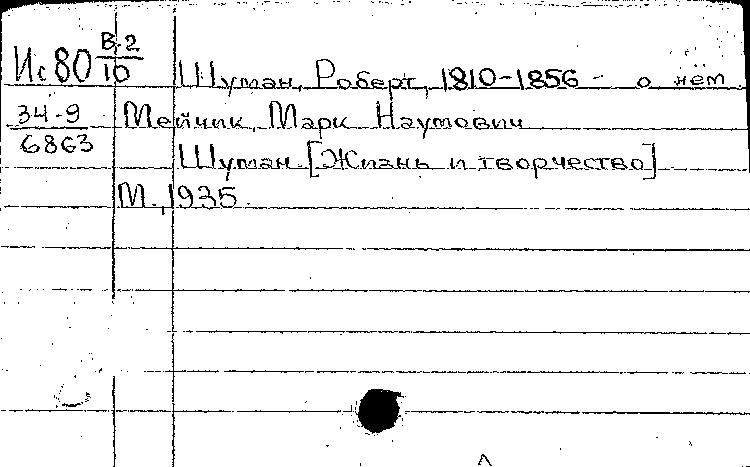 Ис80 В-2/10 Шуман, Роберт, 1810-1856 - о нём
34-9/6863 Мейчик, Марк Наумович
Шуман. [Жизнь и творчество]
М., 1935.